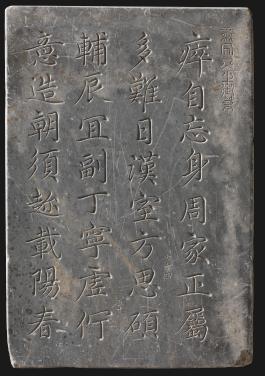 瘁自忘身周家正屬
多難日漢室方思碩
輔辰宜副丁寧虛佇
意造朝須趂載陽春